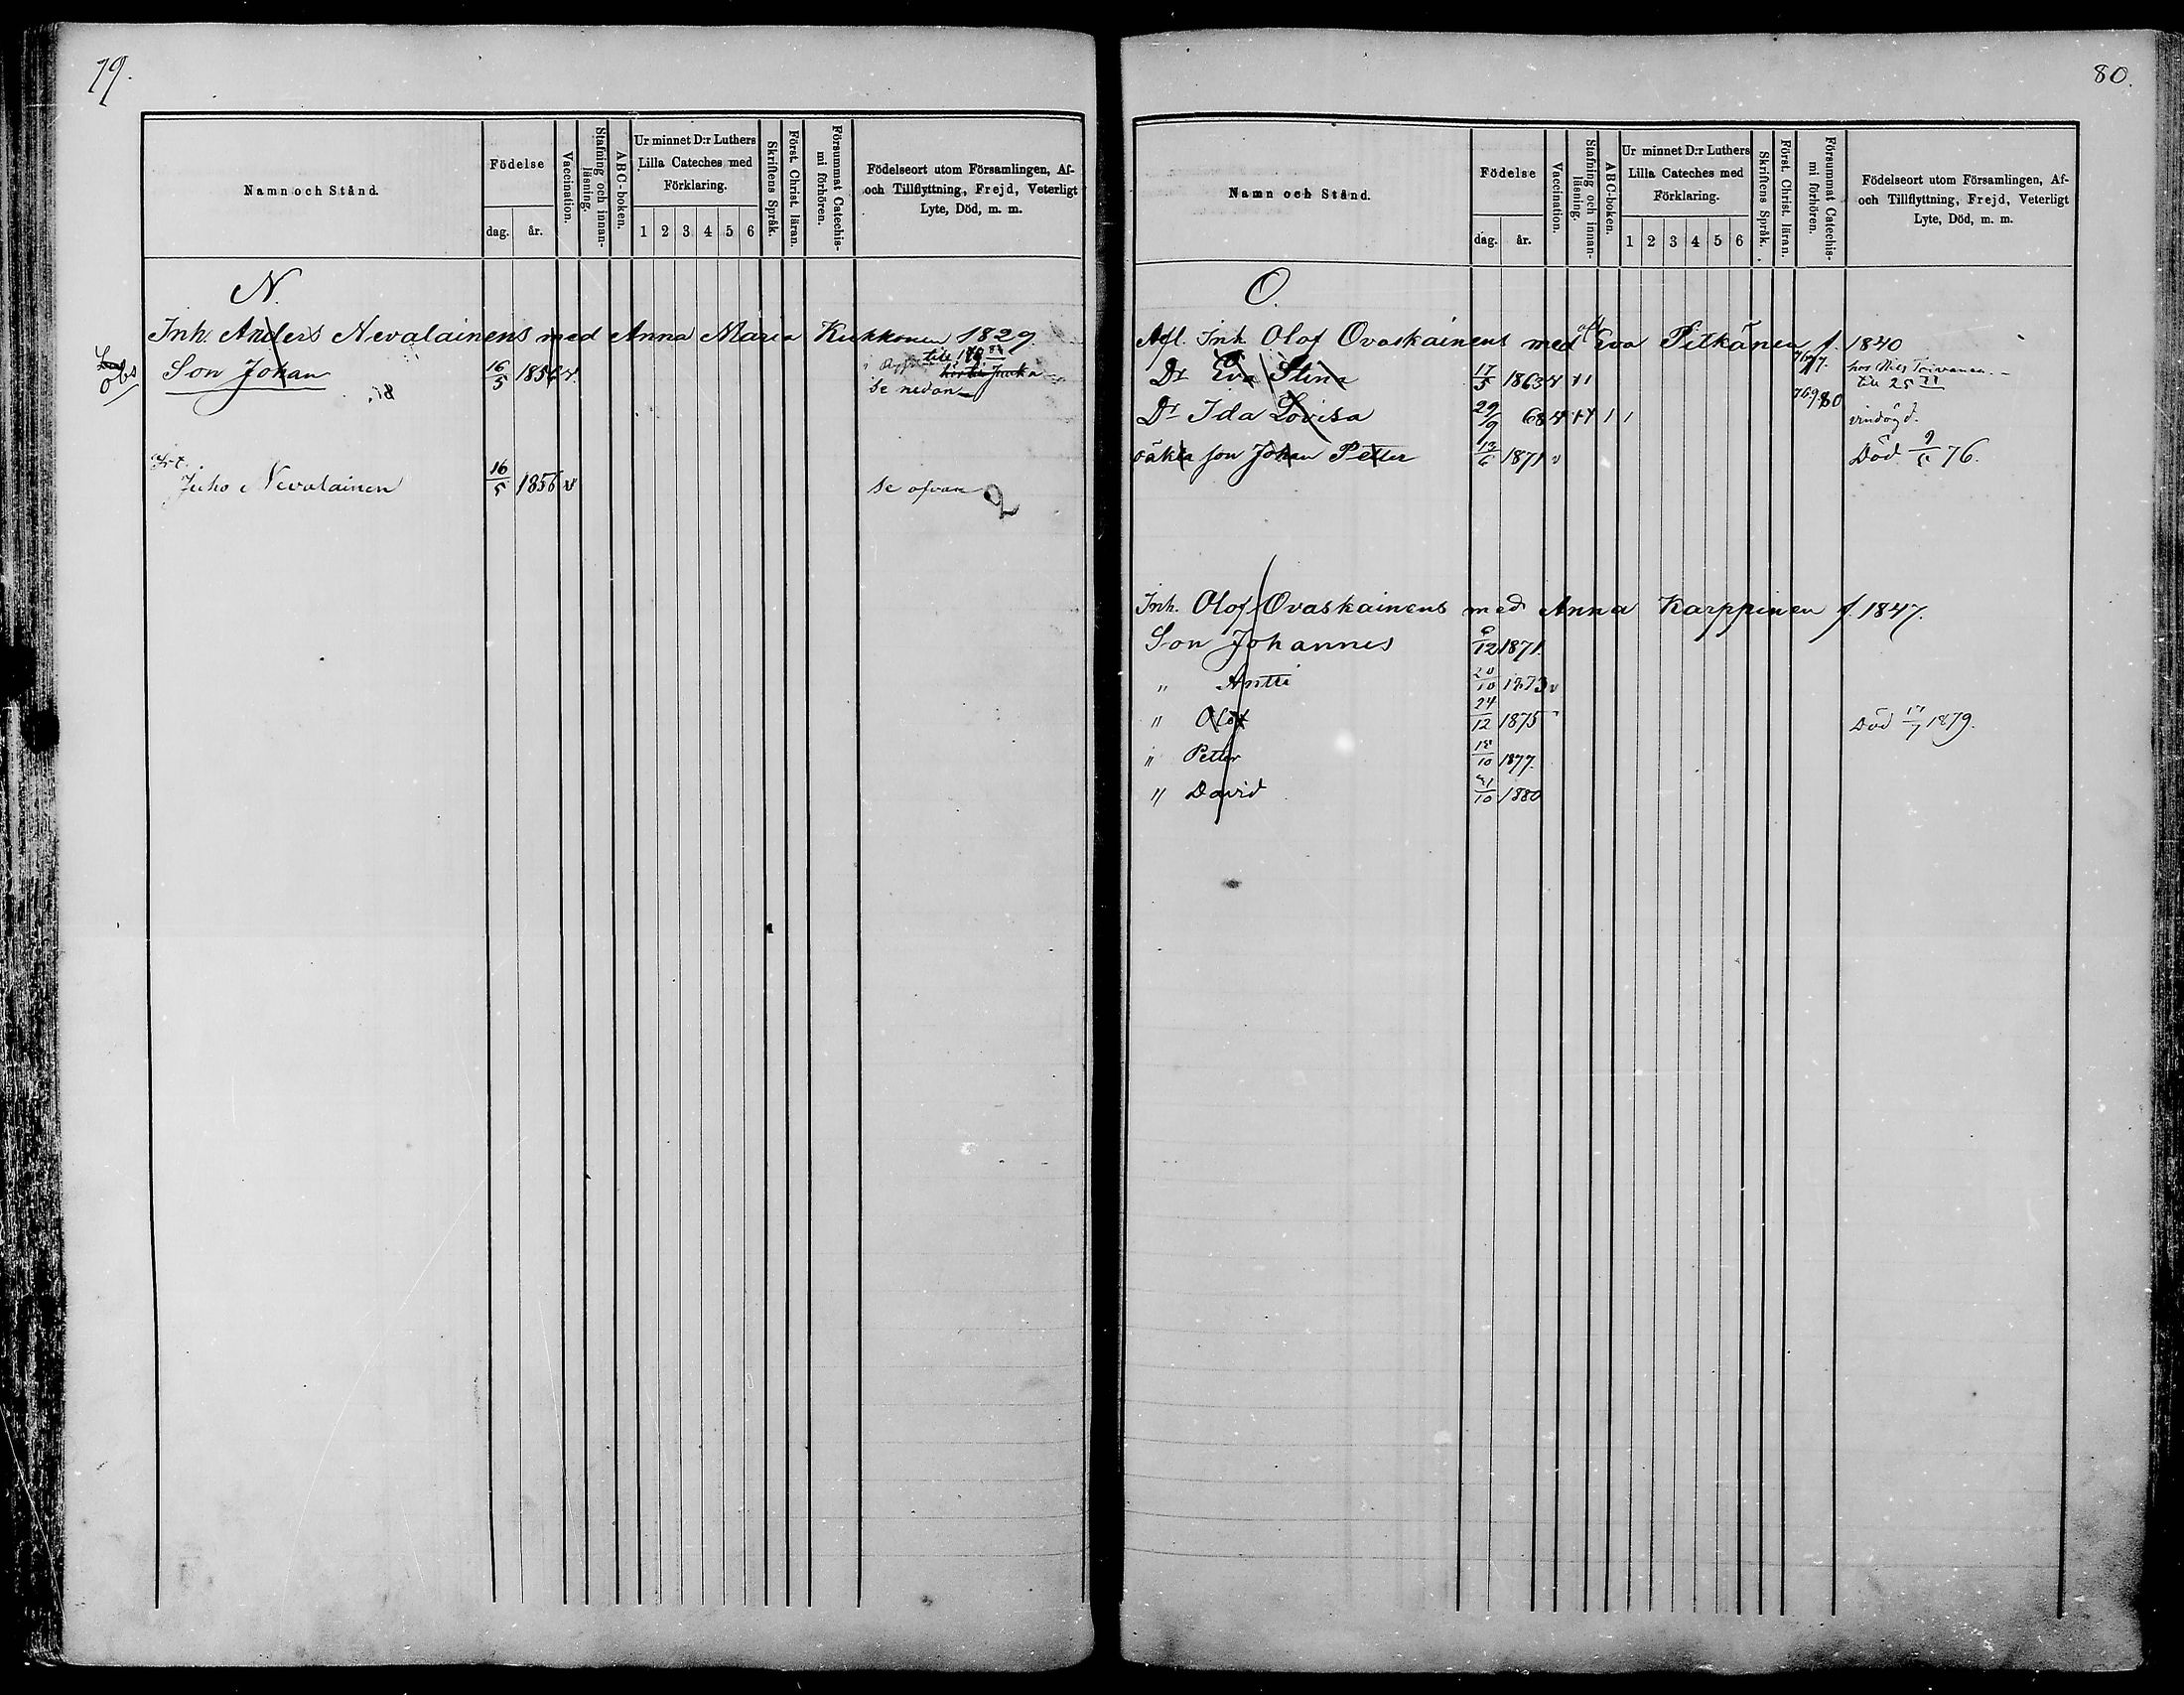 79.
Namn och Stånd.
Födelse
dag.
år.
Vaccination.
Stafning och innan-
läsning.
ABC-boken.
Ur minnet D:r Luthers
Lilla Cateches med
Förklaring.
1 2 3 4 5 6
Skriftens Språk.
Först. Christ. läran.
Försummat Catechis-
mi förhören.
Födelseort utom Församlingen, Af-
och Tillflyttning, Frejd, Veterligt
Lyte, Död, m. m.
N.
Inh. Anders Nevalainens med Anna Maria Kukkonen 1829.
Obs
Son Johan 16/5 1856 v.
se nedan
Juho Nevalainen 16/5 1856 v se ofvan
80.
Namn och Stånd.
Födelse
dag.
år.
Vaccination.
Stafning och innan-
läsning.
ABC-boken.
Ur minnet D:r Luthers
Lilla Cateches med
Förklaring.
1 2 3 4 5 6
Skriftens Språk.
Först. Christ. läran.
Försummat Catechis-
mi förhören.
Födelseort utom Församlingen, Af-
och Tillflyttning, Frejd, Veterligt
Lyte, Död, m. m.
O.
Afl. Inh. Olof Ovaskainens med afl Eva Pitkänen f. 1840
Dr Eva Stina 17/5 1863 hos Nils Toivanen
Dr Ida Lovisa 29/9 68 vindögd.
oäkta son Johan Petter 13/6 1871 v Död 76.
Inh. Olof Ovaskainens med Anna Karppinen f. 1847.
Son Johannes 1871
" Antti 20/10 1873 v
" Olof 24/12 1875 Död 1879.
" Petter 18/10 1877.
" David 31/10 1880